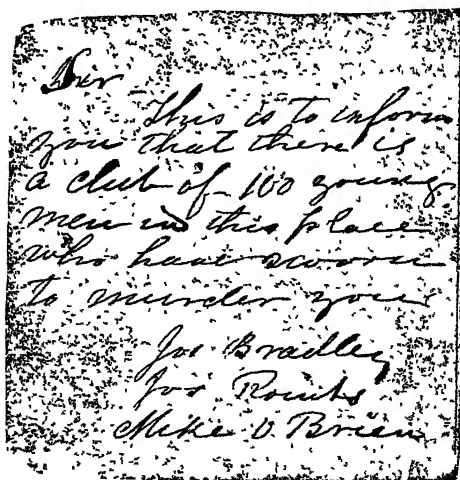 Sir
This is to inform
you that there is
a club of 100 young
men in this place
who have sworn
to murder you
Jos Bradley
Jos
Mike O. Brien